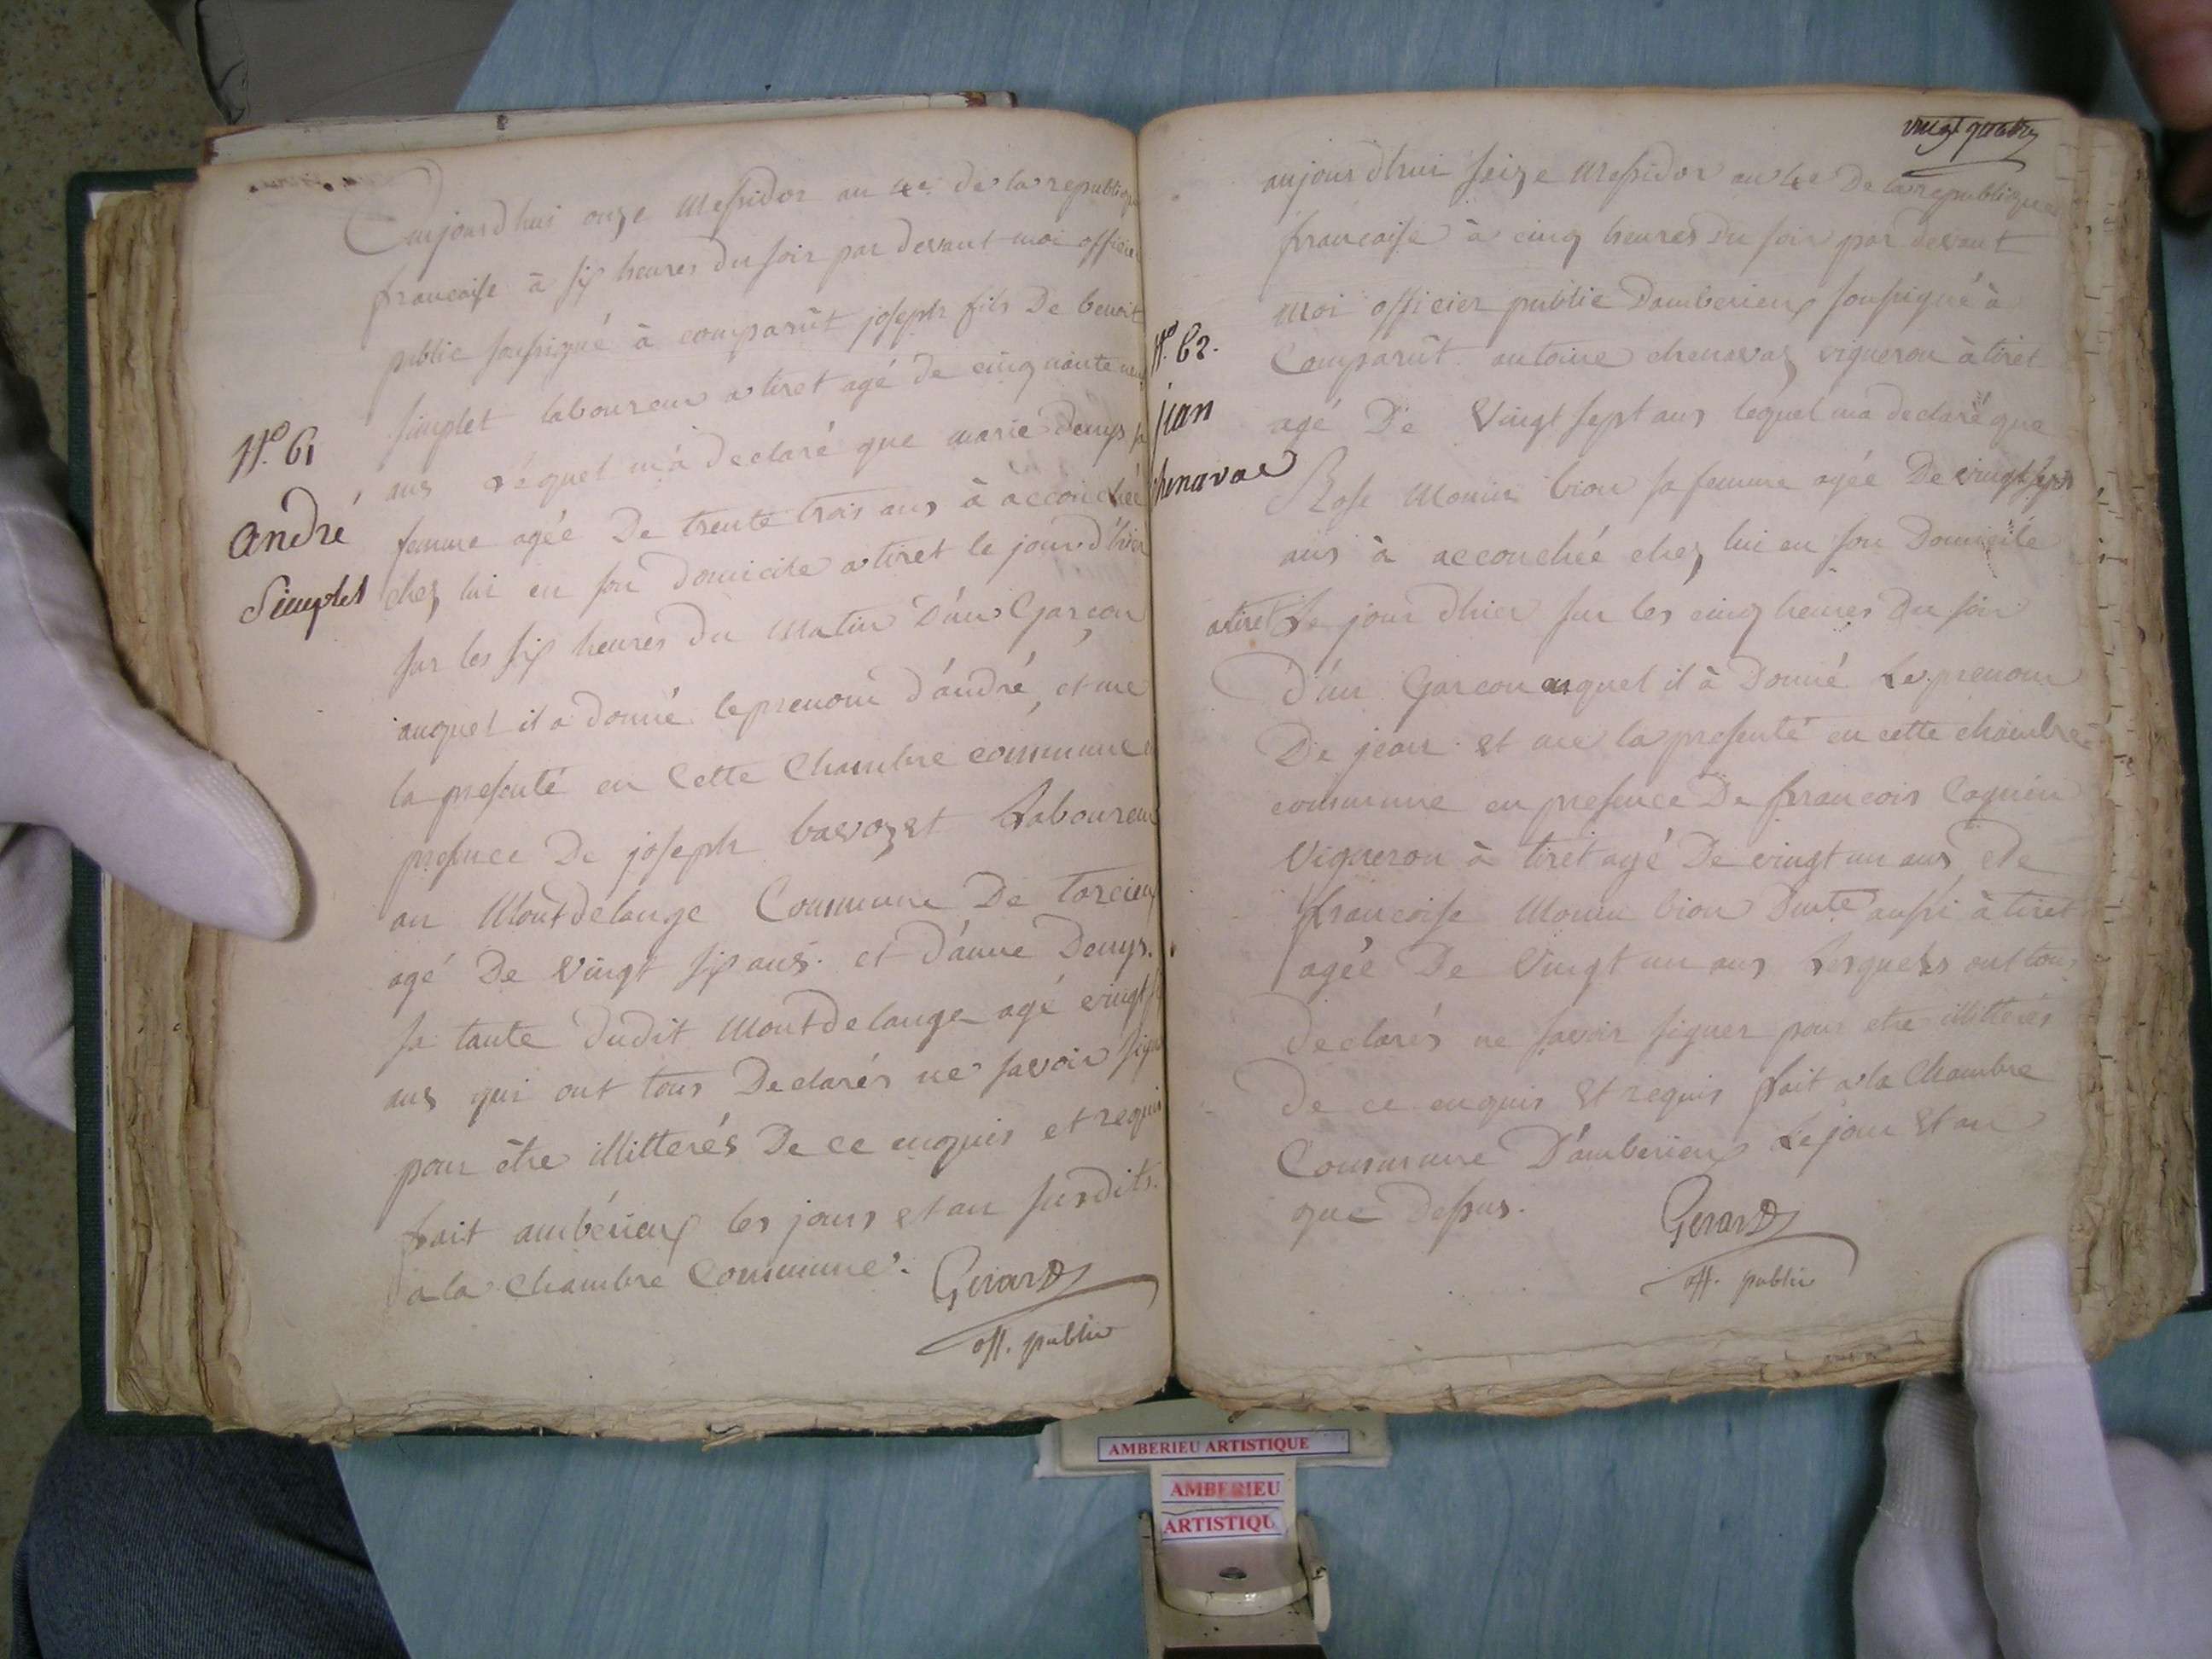 aujourd'hui onze Messidor an 4e. de la republique
francaise à six heures du soir par devant moi officier
public soussigné à comparût joseph fils De benoit
simplet laboureur a tiret agé de cinquante neuf
ans lequel m'a declaré que marie Denys sa
femme agée De trente trois ans à accouchée
chez lui en son domicile a tiret le jour d'hier
sur les six heures du matin D'un Garcon
auquel il a donné le prenom d'andré, et me
la presenté en Cette Chambre commune en
presence De joseph bavozet Laboureur
au Montdelange Commune De torcieux
agé De vingt six ans. et D'anne Denys.
sa tante dudit Montdelange agé vingt
ans qui ont tous Declarés ne savoir signer
pour être illitterés De ce enquis et requis
fait ambérieux les jours et an susdits.
a la Chambre Commune.
Gerard
off. public
No. 61
andré
Simplet
vingt quatre
aujourdhui seize Messidor an 4e De la republique
francaise à cinq heures du soir par devant
moi officier public Damberieux soussigné à
Comparût antoine chenavaz vigneron à tiret
agé De Vingt sept ans lequel ma declaré que
Rose Monin bion sa femme agée De vingt sept
ans à accouchée chez lui en son Domicile
a tiret Le jour dhier sur les cinq heures Du soir
d'un Garcon auquel il à Donné Le prenom
De jean. et me la presenté en cette chambre
commune en presence De francois
Vigneron à tiret agé De vingt un ans et de
francoise Monin bion aussi à tiret
agée De Vingt un ans Lesquels ont tous
declarés ne savoir signer pour etre illitterés
De ce enquis Et requis fait a la Chambre
Commune D'amberieux Le jour Et an
que Dessus.
Gerard
off. public
No. 62.
jean
chenavae
AMBERIEU ARTISTIQUE
AMBERIEU
ARTISTIQU